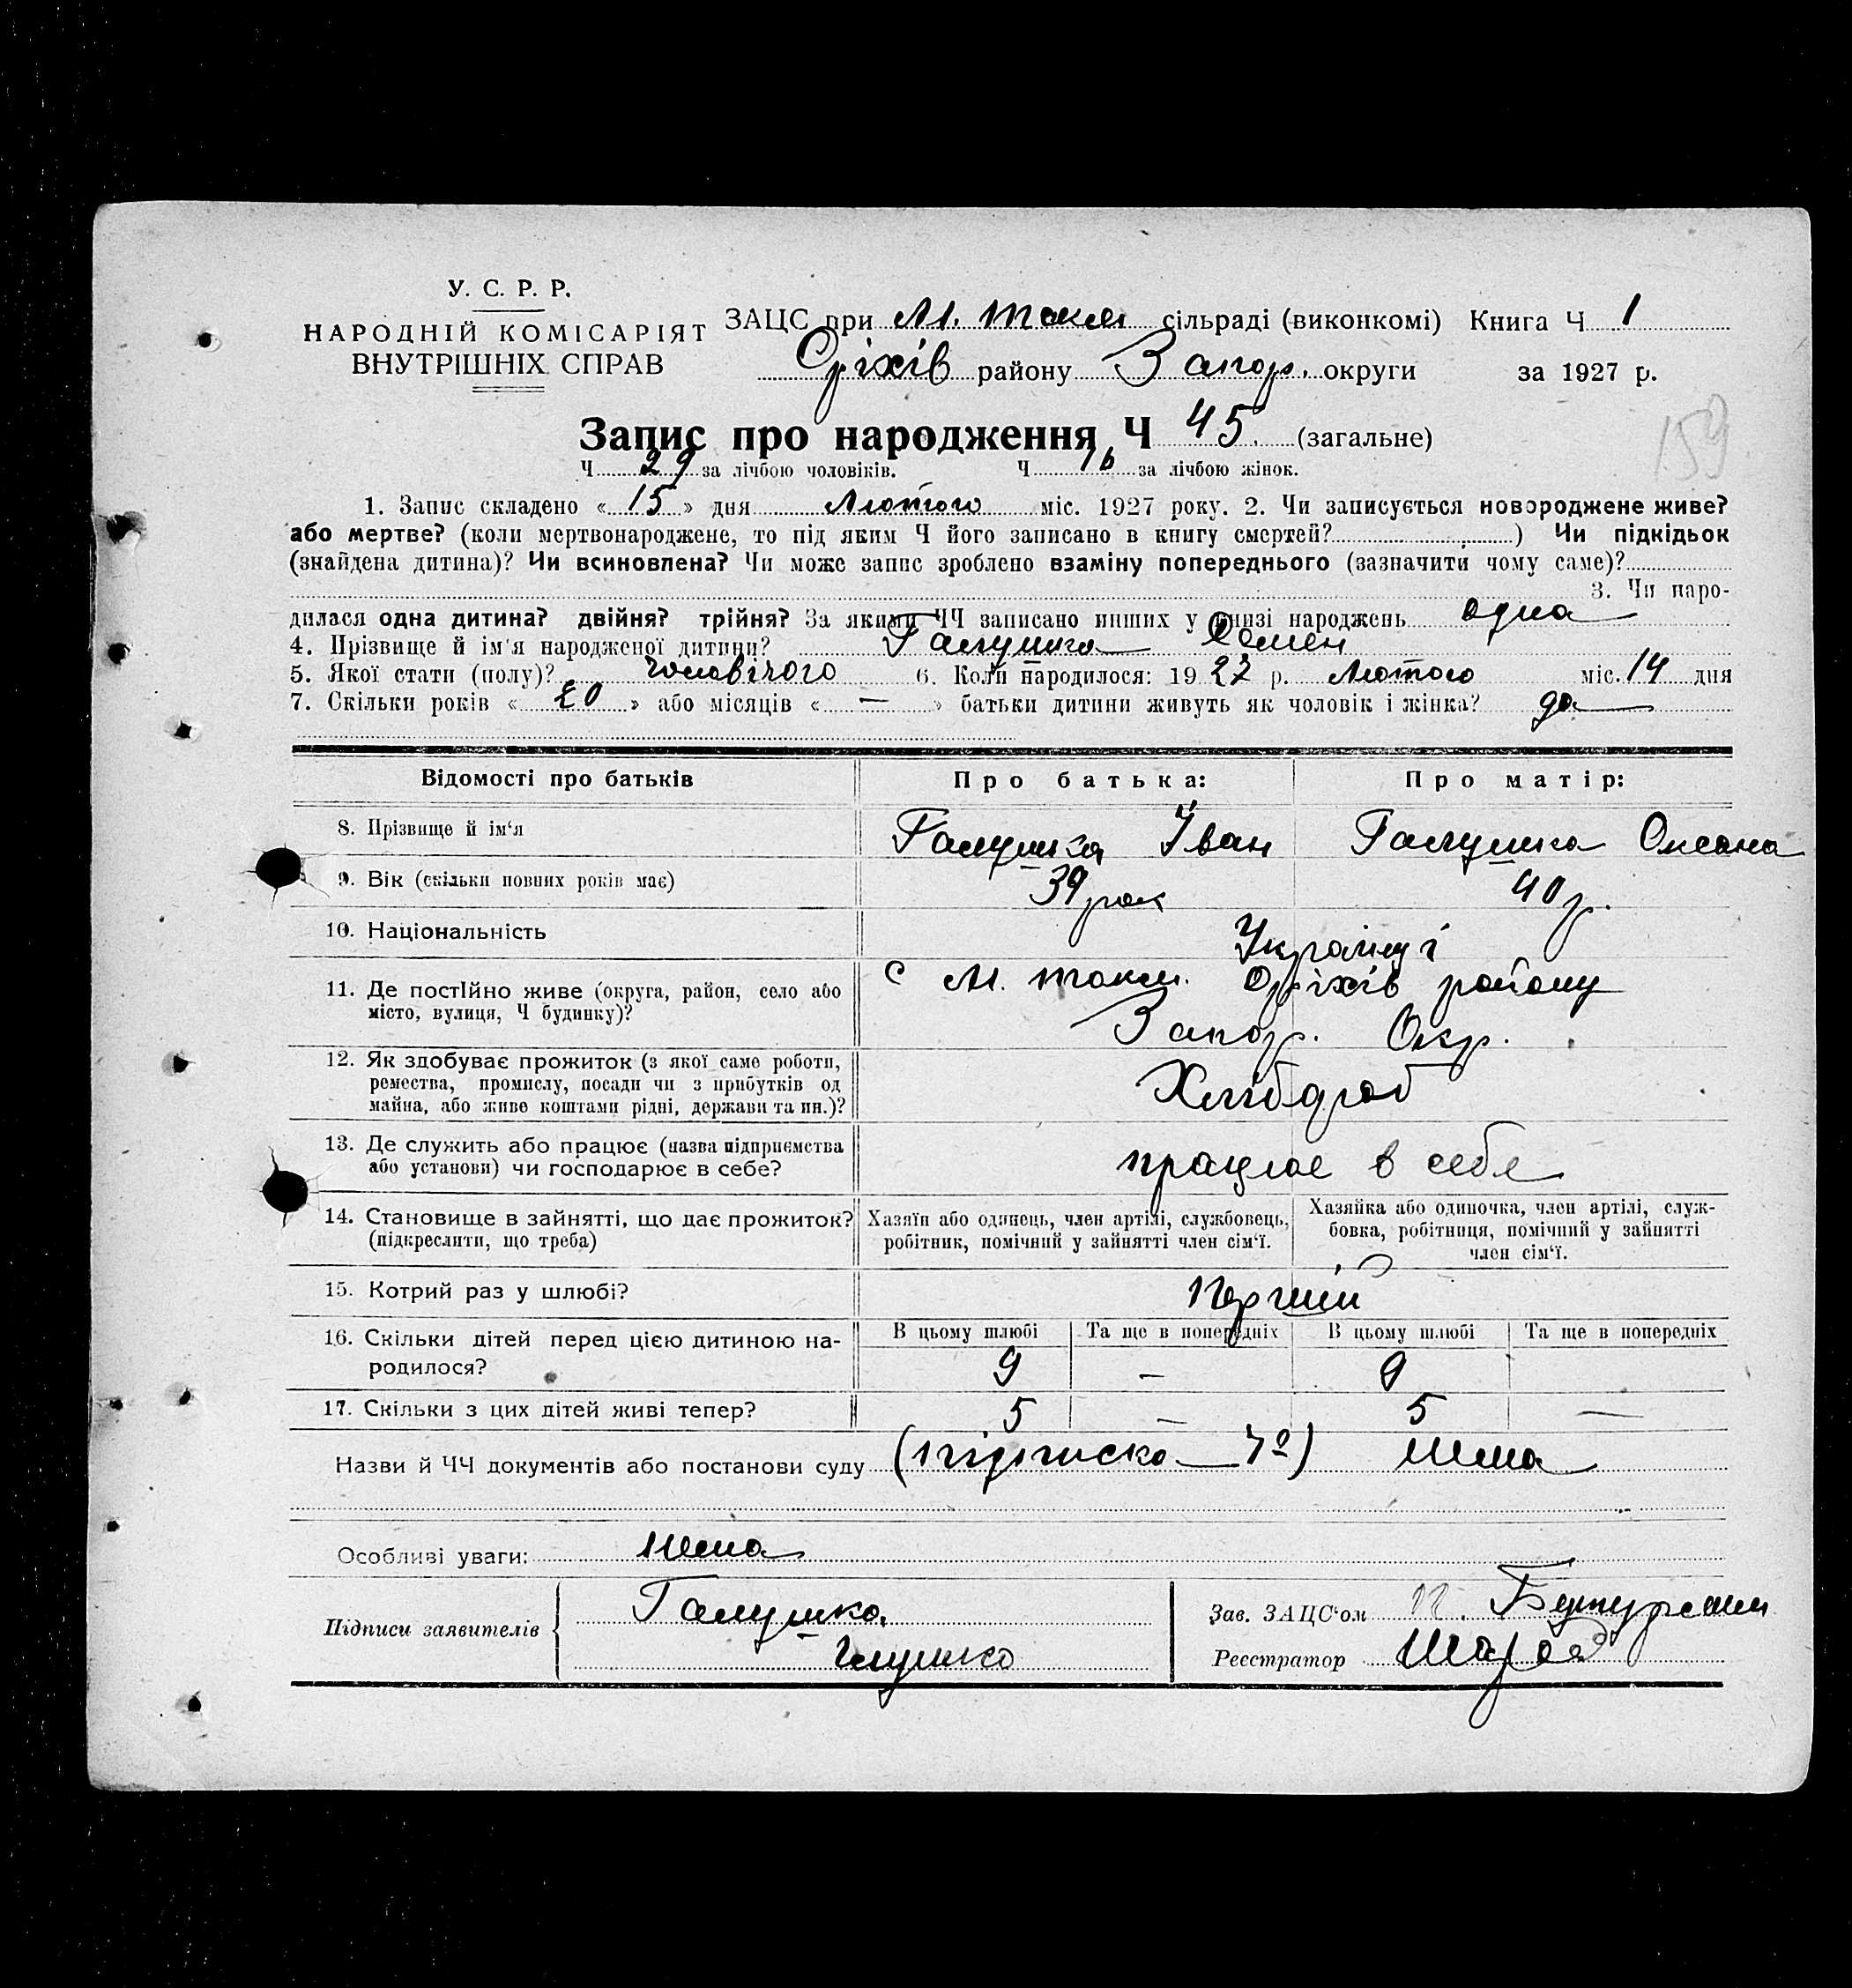 У. С. Р. Р.
НАРОДНІЙ КОМІСАРІЯТ
ВНУТРІШНІХ СПРАВ
ЗАЦС при М. Токм сільраді (виконкомі) Книга Ч 1
Оріхів району Запор. округи за 1927 р.
159
Запис про народження Ч 45 (загальне)
Ч 29 за лічбою чоловіків. Ч 16 за лічбою жінок.
1. Запис складено «15» дня Лютого міс. 1927 року. 2. Чи записується новороджене живе?
або мертве? (коли мертвонароджене, то під яким Ч його записано в книгу смертей? ) Чи підкідьок
(знайдена дитина)? Чи всиновлена? Чи може запис зроблено взаміну попереднього (зазначити чому саме)?
3. Чи наро-
дилася одна дитина? двійня? трійня? За якими ЧЧ записано инших у книзі народжень одна
4. Прізвище й ім'я народженої дитини? Галушка Семен
5. Якої стати (полу)? чоловічого 6. Коли народилося: 1927 р. Лютого міс. 14 дня
7. Скільки років «20» або місяців « — » батьки дитини живуть як чоловік і жінка? да
Відомості про батьків Про батька: Про матір:
8. Прізвище й ім'я Галушка Іван Галушка Оксана
9. Вік (скільки повних років має) 39 рок 40 р.
10. Національність Українці
11. Де постійно живе (округа, район, село або
місто, вулиця, Ч будинку)?
с М. Токм. Оріхів району
Запор. Окр.
12. Як здобуває прожиток (з якої саме роботи,
ремества, промислу, посади чи з прибутків од
майна, або живе коштами рідні, держави та ин.)?
Хлібороб
13. Де служить або працює (назва підприємства
або установи) чи господарює в себе?
працює в себе
14. Становище в зайнятті, що дає прожиток?
(підкреслити, що треба)
Хазяїн або одинець, член артілі, службовець,
робітник, помічний у зайнятті член сім'ї.
Хазяйка або одиночка, член артілі, служ-
бовка, робітниця, помічний у зайнятті
член сім'ї.
15. Котрий раз у шлюбі? Перший
16. Скільки дітей перед цією дитиною на-
родилося?
В цьому шлюбі Та ще в попередніх В цьому шлюбі Та ще в попередніх
9 — 9
17. Скільки з цих дітей живі тепер? 5 — 5 —
Назви й ЧЧ документів або постанови суду (підписка — ) Нема
Особливі уваги: Нема
Підписи заявителів Галушка
Зав. ЗАЦС'ом
Реєстратор